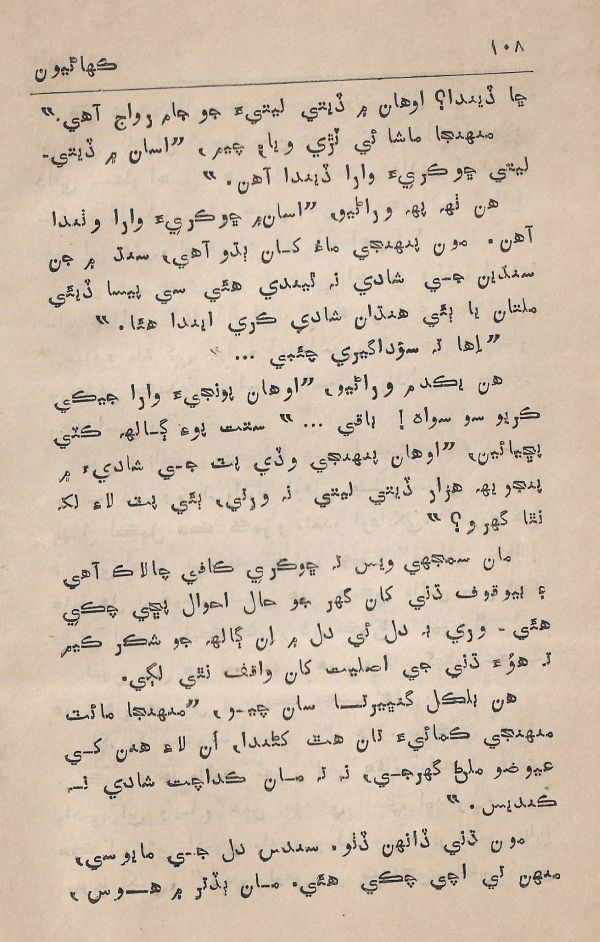 ۱۰۸
ڪهاڻيون
ڇا ڏيندا؟ اوهان ۾ ڏيتي ليتيءَ جو ڄام رواج آهي.“
منهنجا ماشا ئي ٽڙي ويا، چيم، ”اسان ۾ ڏيتي-
ليتي ڇوڪريءَ وارا ڏيندا آهن.“
هن ٺهه پهه ورائيو، ”اسان ۾ ڇوڪريءَ وارا وٺندا
آهن. مون پنهنجي ماءُ کان ٻڌو آهي، سنڌ ۾ جن
سنڌين جي شادي نہ ٿيندي هئي سي پيسا ڏيئي
ملتان يا ٻئي هنڌان شادي ڪري ايندا هئا.“
”اِها تہ سؤداگيري چئبي ...“
هن يڪدم ورائيو، ”اوهان پونجيءَ وارا جيڪي
ڪريو سو سواه! باقي ...“ ستت پوءِ ڳالهه ڪٽي
پڇيائين، ”اوهان پنهنجي وڏي پٽ جي شاديءَ ۾
پنجويهه هزار ڏيتي ليتي نہ ورتي، ٻئي پٽ لاءِ لک
نٿا گهرو؟“
مان سمجهي ويس تہ ڇوڪري ڪافي چالاڪ آهي
۽ بيوقوف ڌڻي کان گهر جو حال احوال پڇي چڪي
هئي- وري بہ دل ئي دل ۾ اِن ڳالهه جو شڪر ڪيم
تہ هوءَ ڌڻي جي اصليت کان واقف نٿي لڳي.
هن بلڪل گنڀيرتا سان چيو، ”منهنجا مائٽ
منهنجي ڪمائيءَ تان هٿ کڻندا، اُن لاءِ هنن کي
عيوضو ملڻ گهرجي، نہ تہ مان ڪداچت شادي نہ
ڪنديس.“
مون ڌڻي ڏانهن ڏٺو. سندس دل جي مايوسي،
منهن تي اچي چڪي هئي. مان ٻڌتر ۾ هوس،